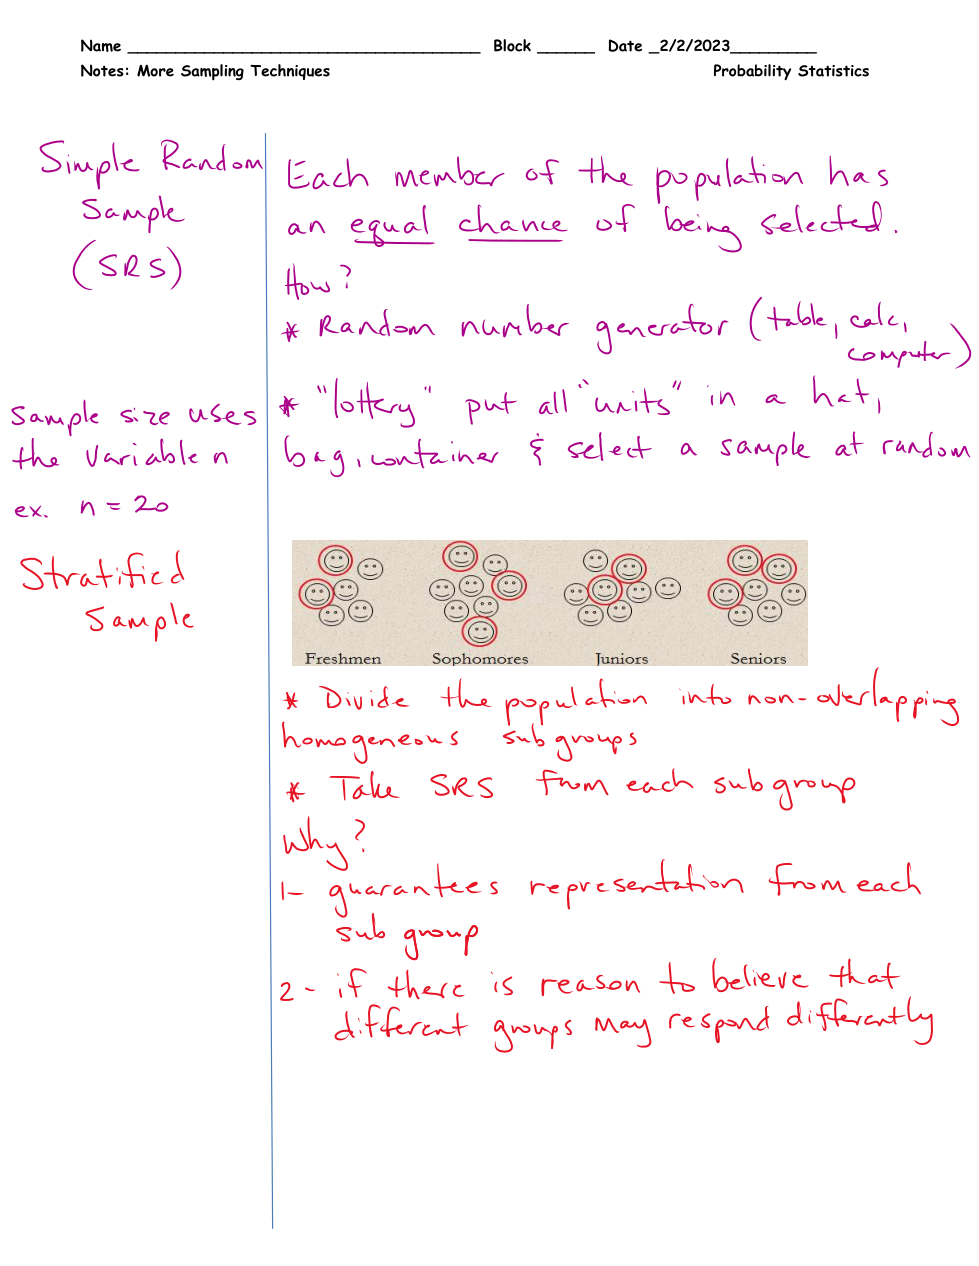 Name ______________________________________ Block ______ Date _2/2/2023_________
Notes: More Sampling Techniques Probability Statistics
Simple Random
Sample
(SRS)
Each member of the population has
an equal chance of being selected.
How?
* Random number generator (table, calc,
computer)
* "lottery" put all "units" in a hat,
bag, container & select a sample at random
Sample size uses
the variable n
ex. n = 20
Stratified
Sample
Freshmen Sophomores Juniors Seniors
* Divide the population into non-overlapping
homogeneous subgroups
* Take SRS from each subgroup
Why?
1- guarantees representation from each
sub group
2- if there is reason to believe that
different groups may respond differently